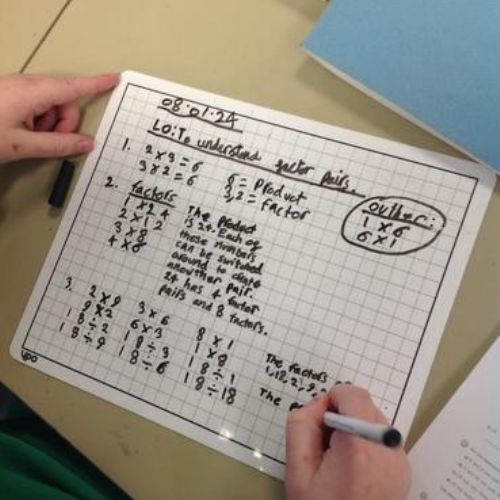 08.01.24
LO: To understand factor pairs.
1. 2 x 3 = 6
3 x 2 = 6
6 = Product
3, 2 = Factor
Outher:
1 x 6
6 x 1
2. factors
1 x 24
2 x 12
3 x 8
4 x 6
The Product
is 24. Each of
these numbers
can be switched
around to create
another pair.
24 has 4 factor
pairs and 8 factors.
3. 2 x 9
9 x 2
18 ÷ 2
18 ÷ 9
3 x 6
6 x 3
18 ÷ 3
18 ÷ 6
18 x 1
1 x 18
18 ÷ 1
18 ÷ 18
The factors
1, 18, 2, 9,
The